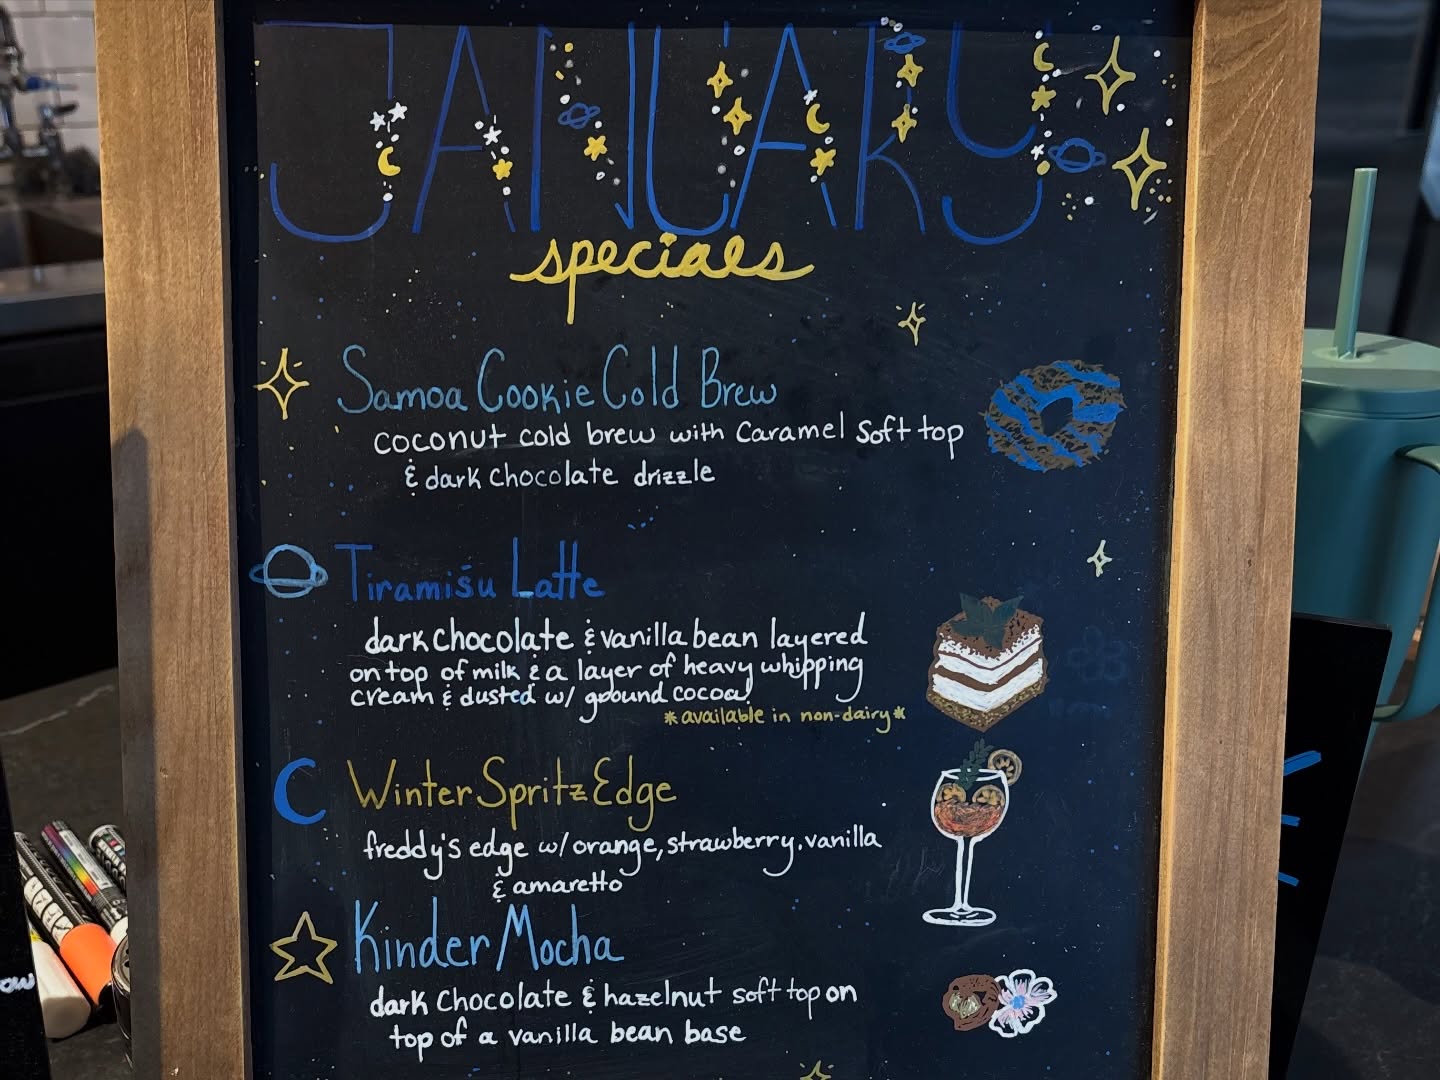 JANUARY
specials
Samoa Cookie Cold Brew
coconut cold brew with caramel soft top
& dark chocolate drizzle
Tiramisu Latte
dark chocolate & vanilla bean layered
on top of milk & a layer of heavy whipping
cream & dusted w/ ground cocoa!
*available in non-dairy*
Winter Spritz Edge
freddy's edge w/ orange, strawberry, vanilla
& amaretto
Kinder Mocha
dark chocolate & hazelnut soft top on
top of a vanilla bean base